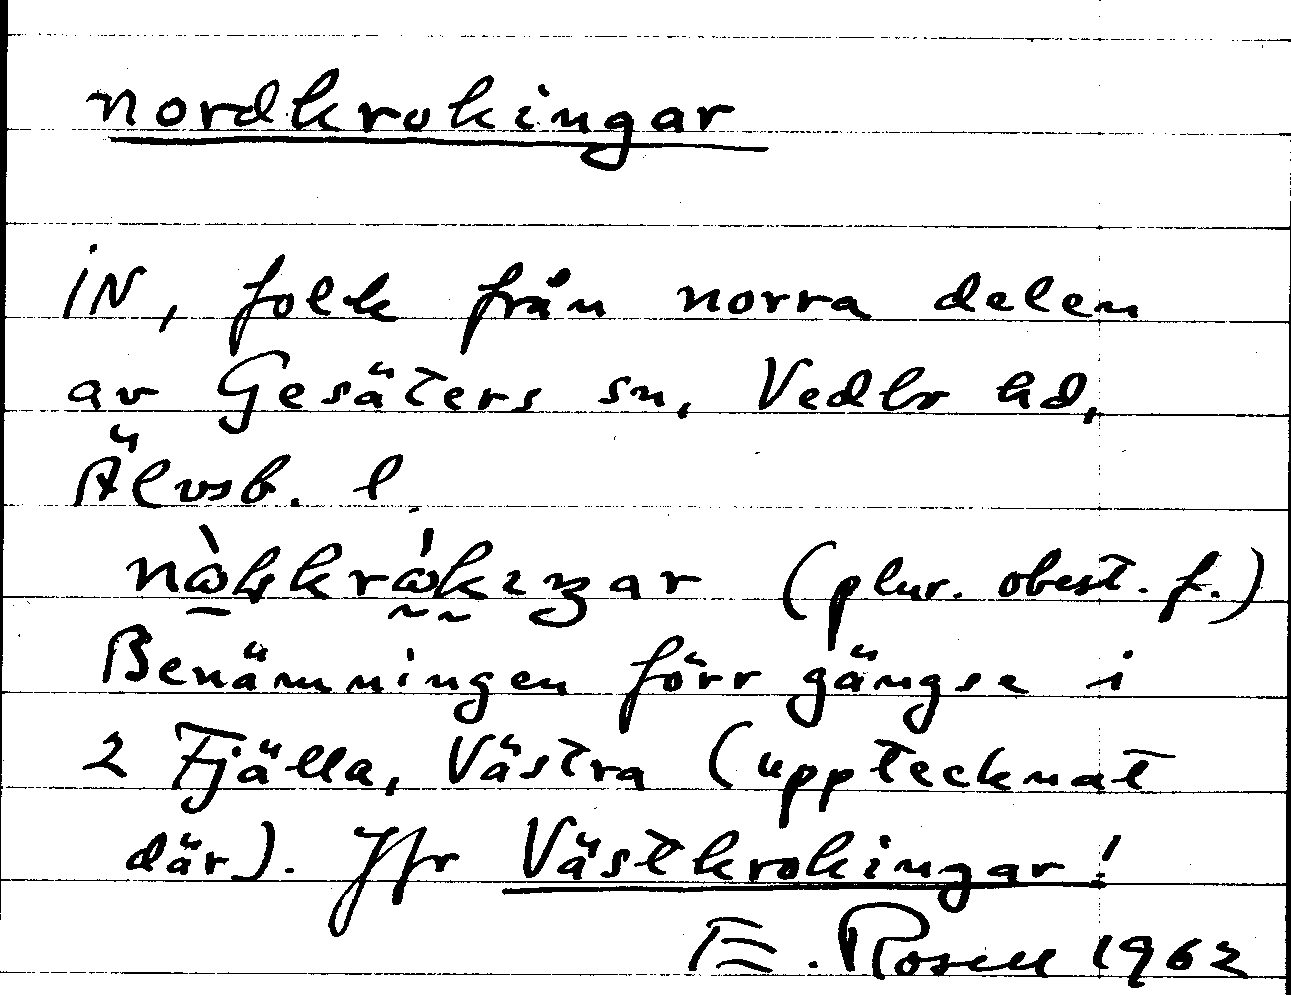 nordkrokingar
iN, folk från norra delen
av Gesäters sn, Vedbo hd,
Älvsb. l.
(plur. obest. f.)
Benämningen förr gängse i
2 Fjälla, Västra (upptecknat
där). Jfr Västkrokingar!
E. Rosell 1962